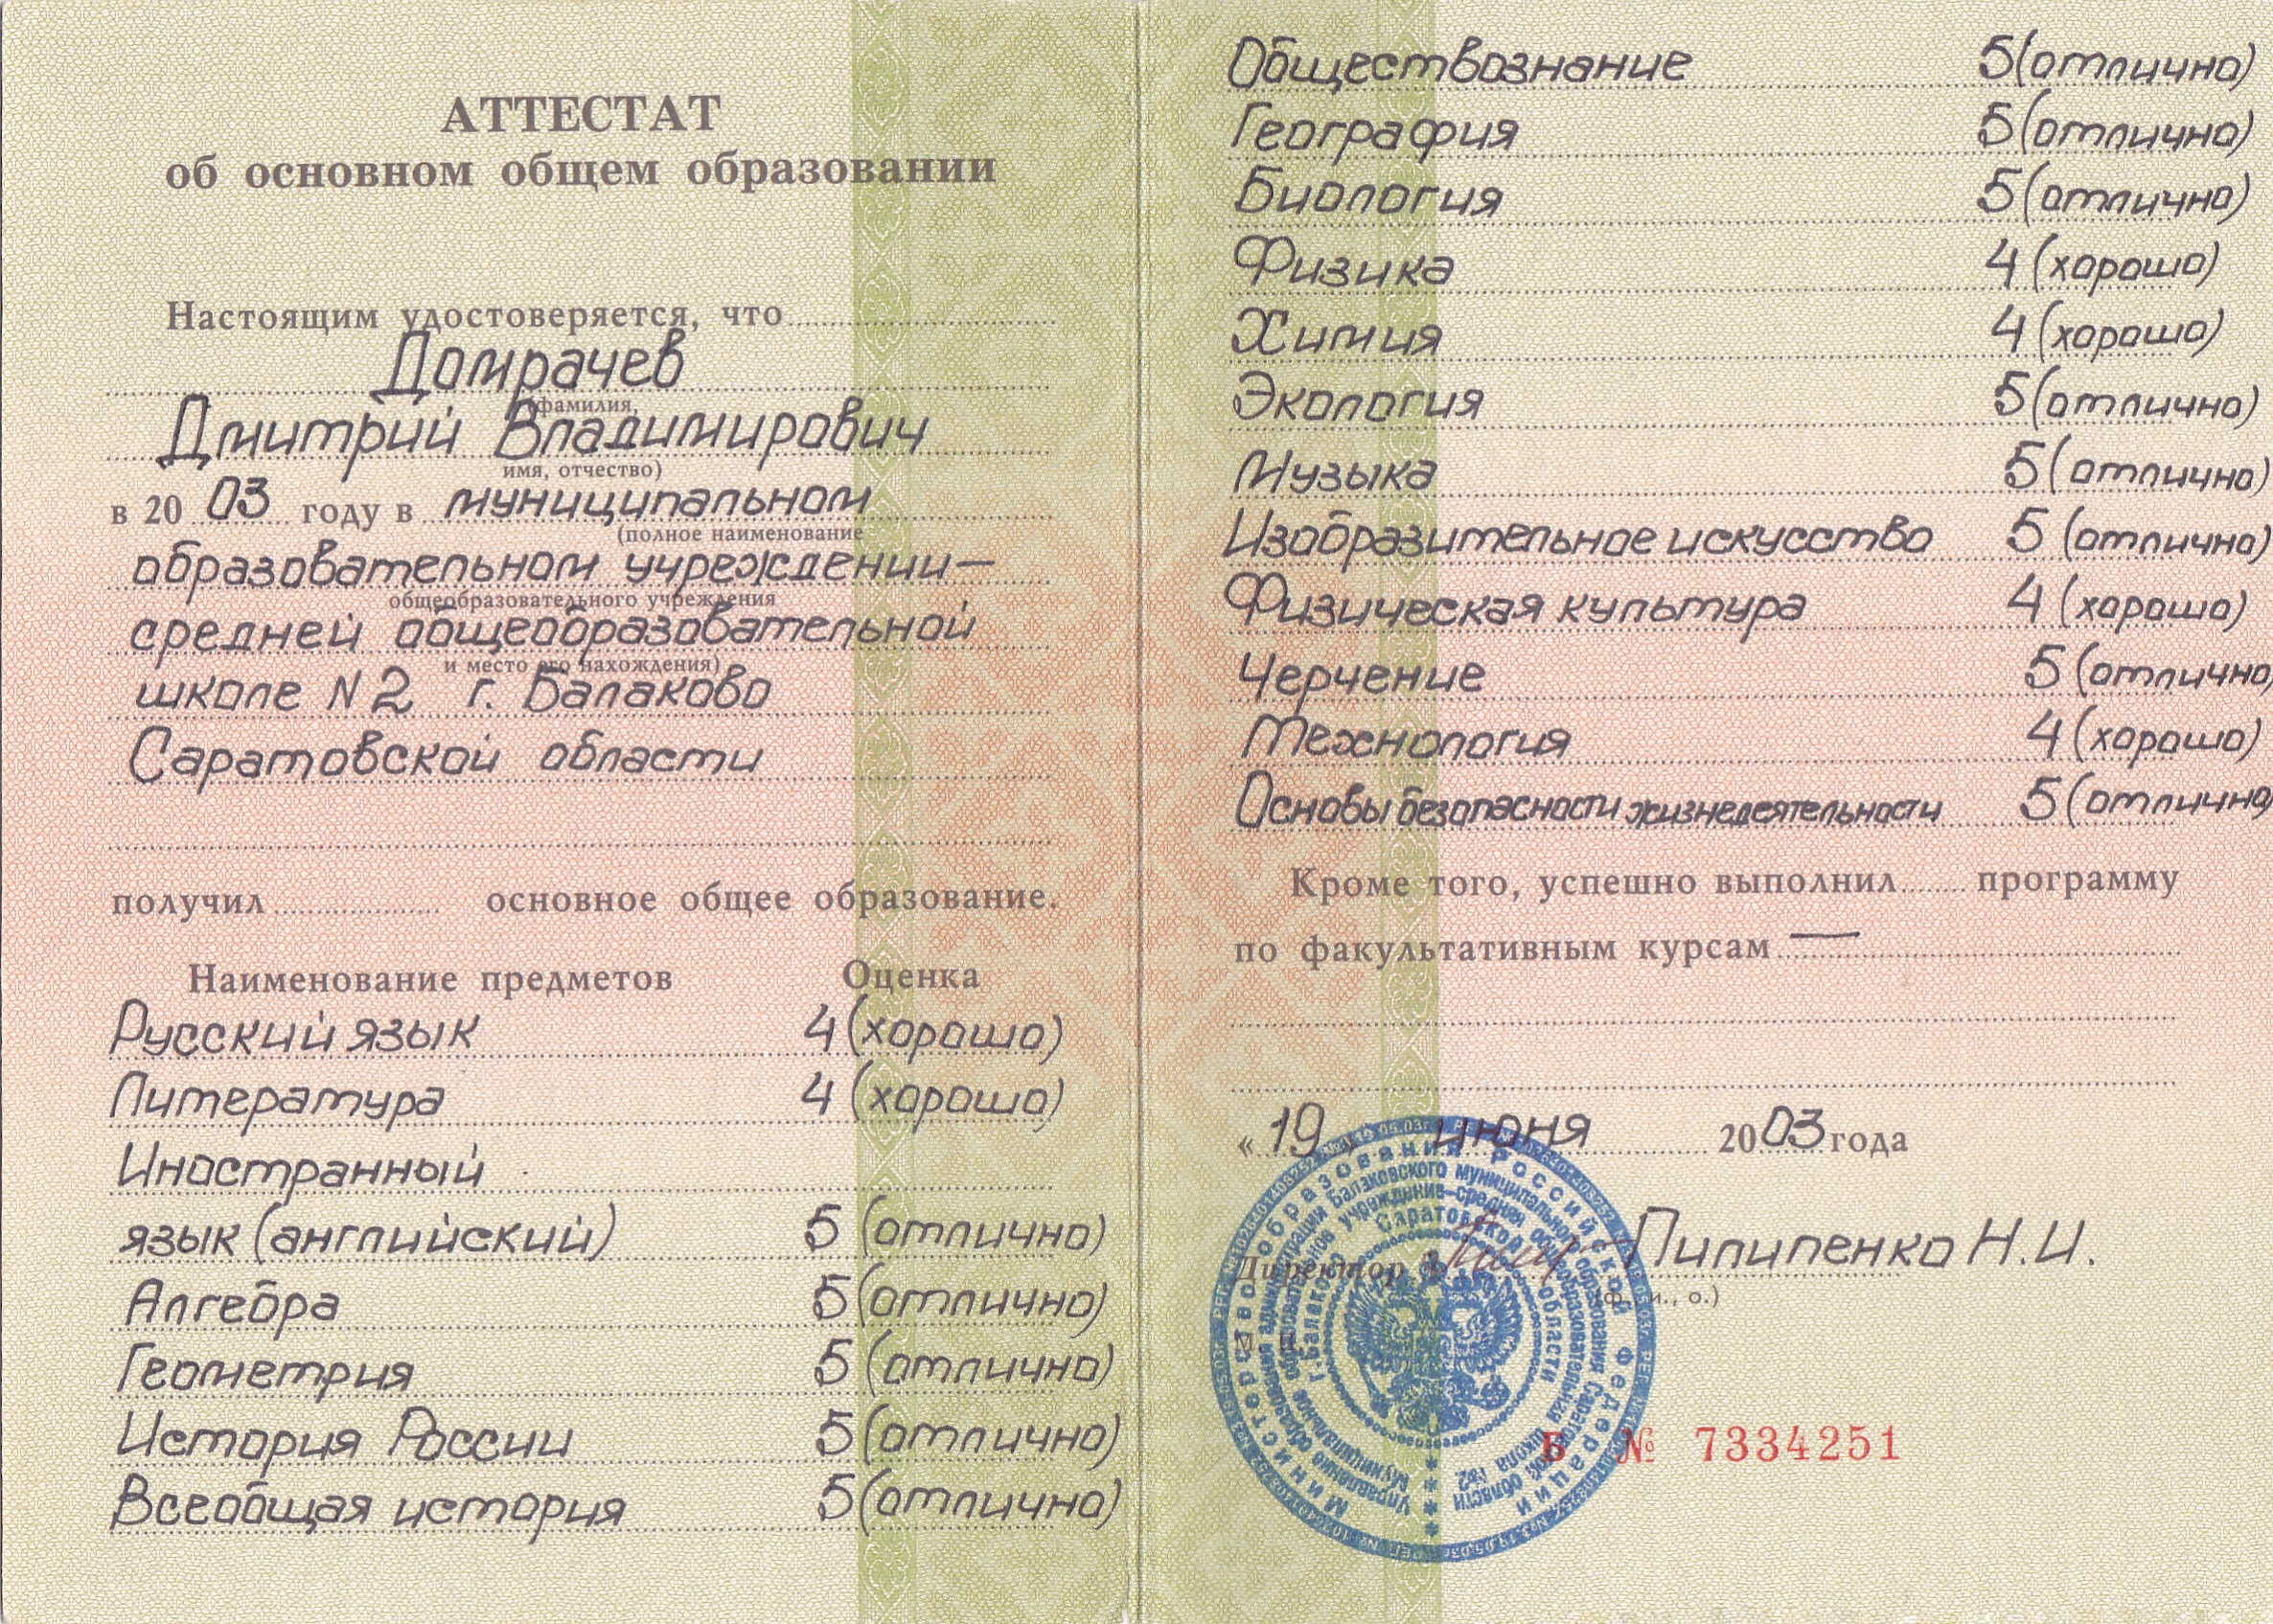 АТТЕСТАТ
об основном общем образовании
Настоящим удостоверяется, что
Домрачев
(фамилия,
Дмитрий Владимирович
имя, отчество)
в 20 03 году в муниципальном
(полное наименование
образовательном учреждении—
общеобразовательного учреждения
средней общеобразовательной
и место его нахождения)
школе N 2 г. Балаково
Саратовской области
получил основное общее образование.
Наименование предметов Оценка
Русский язык 4 (хорошо)
Литература 4 (хорошо)
Иностранный
язык (английский) 5 (отлично)
Алгебра 5 (отлично)
Геометрия 5 (отлично)
История России 5 (отлично)
Всеобщая история 5 (отлично)
Обществознание 5 (отлично)
География 5 (отлично)
Биология 5 (отлично)
Физика 4 (хорошо)
Химия 4 (хорошо)
Экология 5 (отлично)
Музыка 5 (отлично)
Изобразительное искусство 5 (отлично)
Физическая культура 4 (хорошо)
Черчение 5 (отлично)
Технология 4 (хорошо)
Основы безопасности жизнедеятельности 5 (отлично)
Кроме того, успешно выполнил программу
по факультативным курсам —
« 19 » июня 20 03 года
Директор Пилипенко Н.И.
(ф., и., о.)
М. П.
Министерство образования Российской Федерации
Управление образования администрации Балаковского муниципального образования Саратовской области
Муниципальное образовательное учреждение-средняя общеобразовательная школа №2
г.Балаково Саратовской области
Б № 7334251